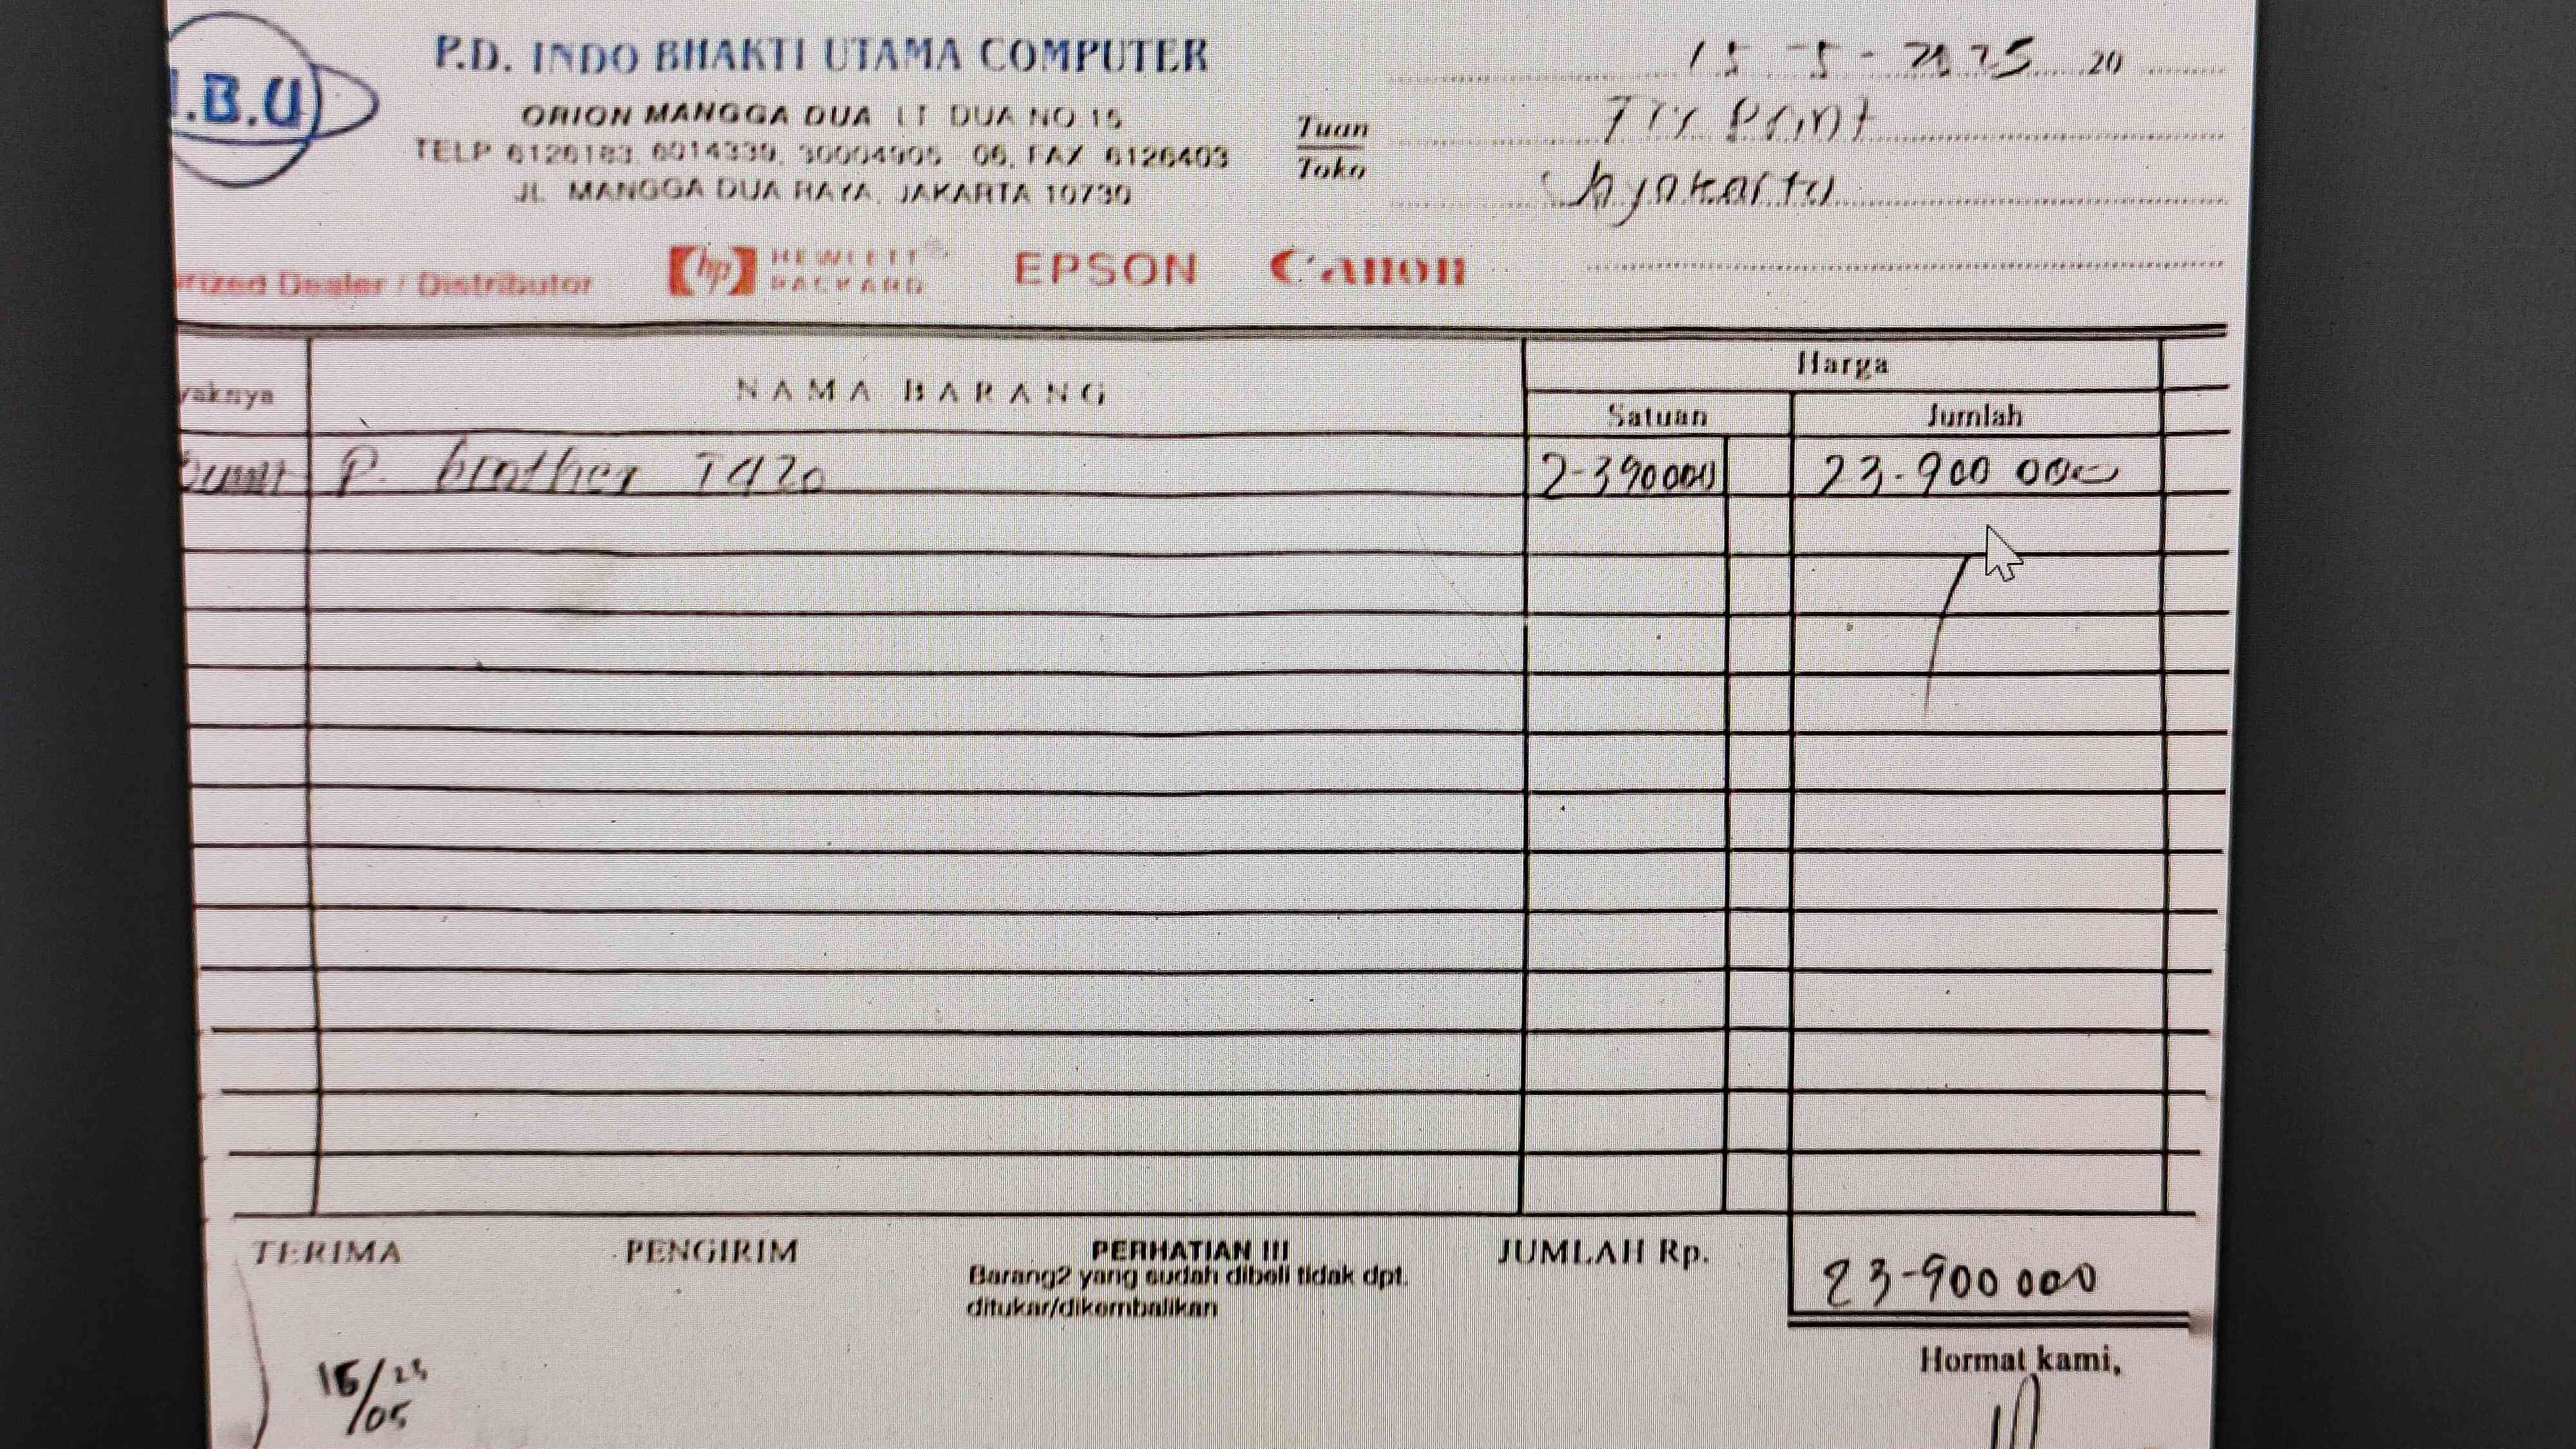 I.B.U
P.D. INDO BHAKTI UTAMA COMPUTER
ORION MANGGA DUA LT DUA NO 15
TELP 6126183, 6014339, 30004905 06, FAX 6126403
JL. MANGGA DUA RAYA, JAKARTA 10730
15 - 5 - 2025 20
Tuan
Toko
Print
rized Dealer / Distributor
hp HEWLETT PACKARD EPSON Canon
yaknya NAMA BARANG Harga
Satuan Jumlah
P. brother T420 2-390000 23-900 000
TERIMA PENGIRIM PERHATIAN !!! JUMLAH Rp. 23-900 000
Barang2 yang sudah dibeli tidak dpt.
ditukar/dikembalikan
Hormat kami,
/05